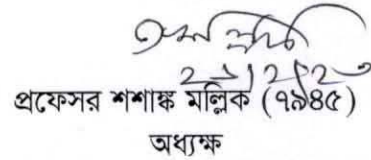 প্রফেসর শশাঙ্ক মল্লিক (৭৯৪৫)
অধ্যক্ষ